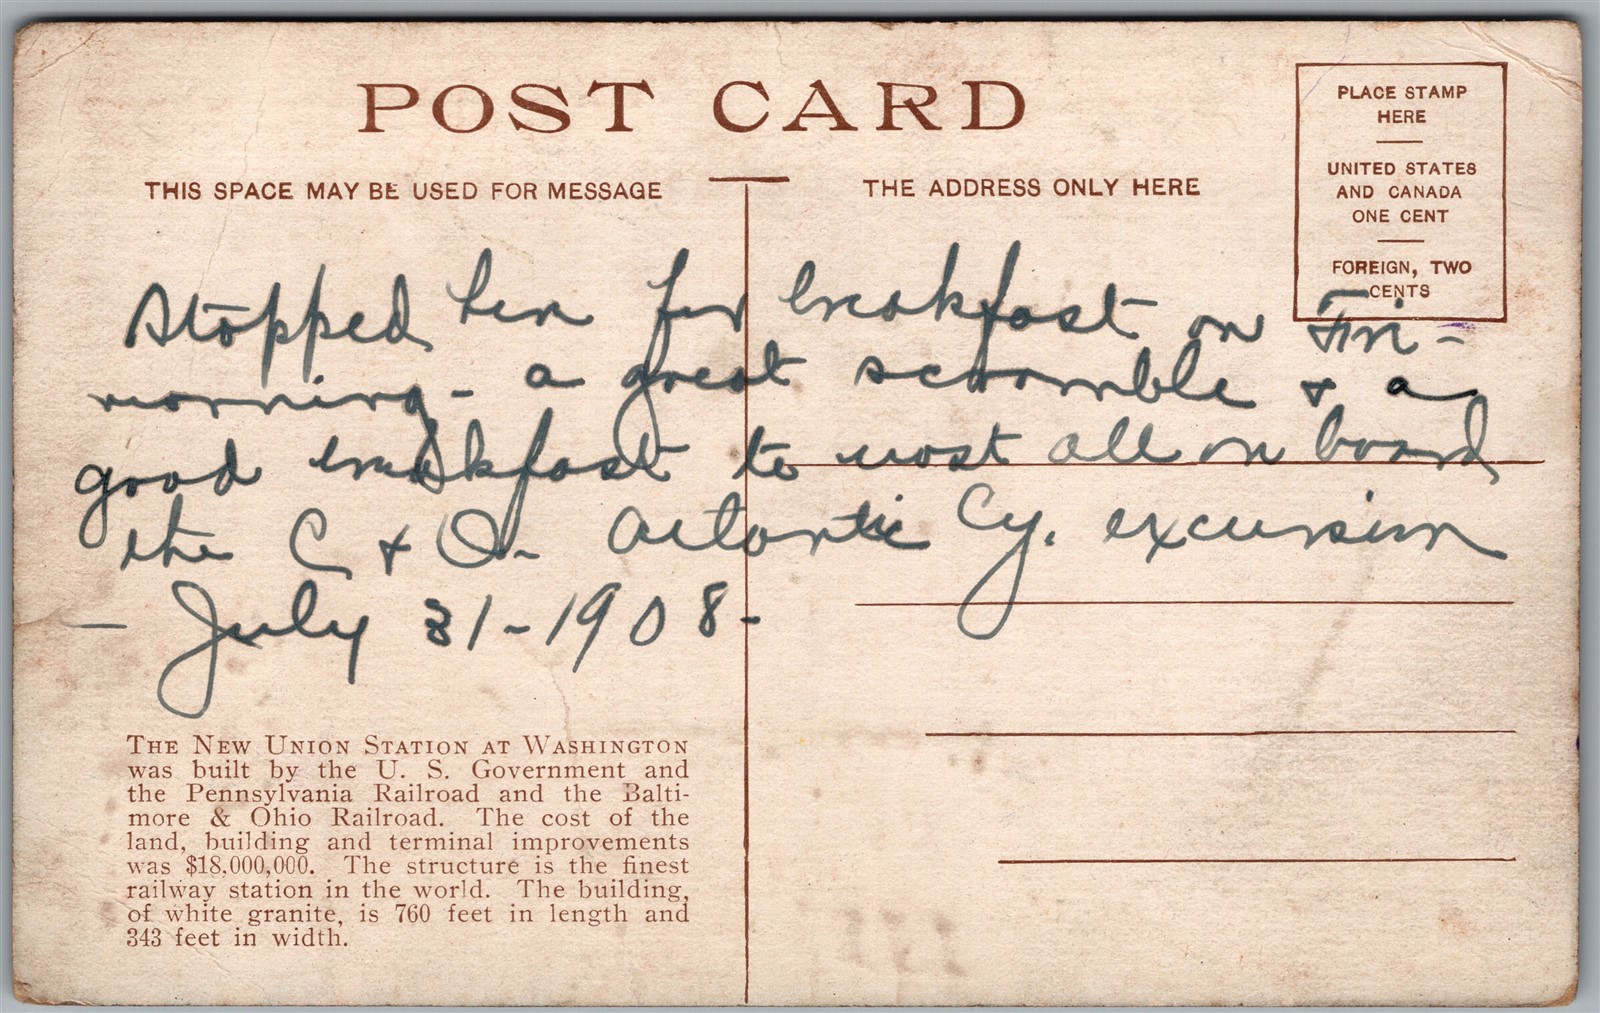 POST CARD
THIS SPACE MAY BE USED FOR MESSAGE
THE ADDRESS ONLY HERE
PLACE STAMP
HERE
UNITED STATES
AND CANADA
ONE CENT
FOREIGN, TWO
CENTS
Stopped here for breakfast on Fri-
morning - a great scramble & a
good breakfast to most all on board
the C & O. Atlantic Cy. excursion
- July 31-1908-
THE NEW UNION STATION AT WASHINGTON
was built by the U. S. Government and
the Pennsylvania Railroad and the Balti-
more & Ohio Railroad. The cost of the
land, building and terminal improvements
was $18,000,000. The structure is the finest
railway station in the world. The building,
of white granite, is 760 feet in length and
343 feet in width.